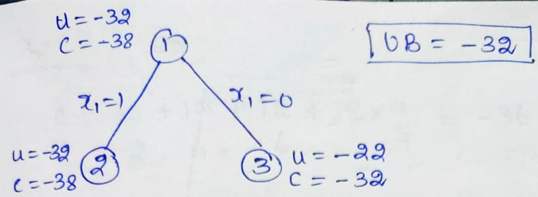 u = -32
C = -38
1
UB = -32
x₁=1
x₁=0
u = -32
C = -38
2
3
u = -22
C = -32